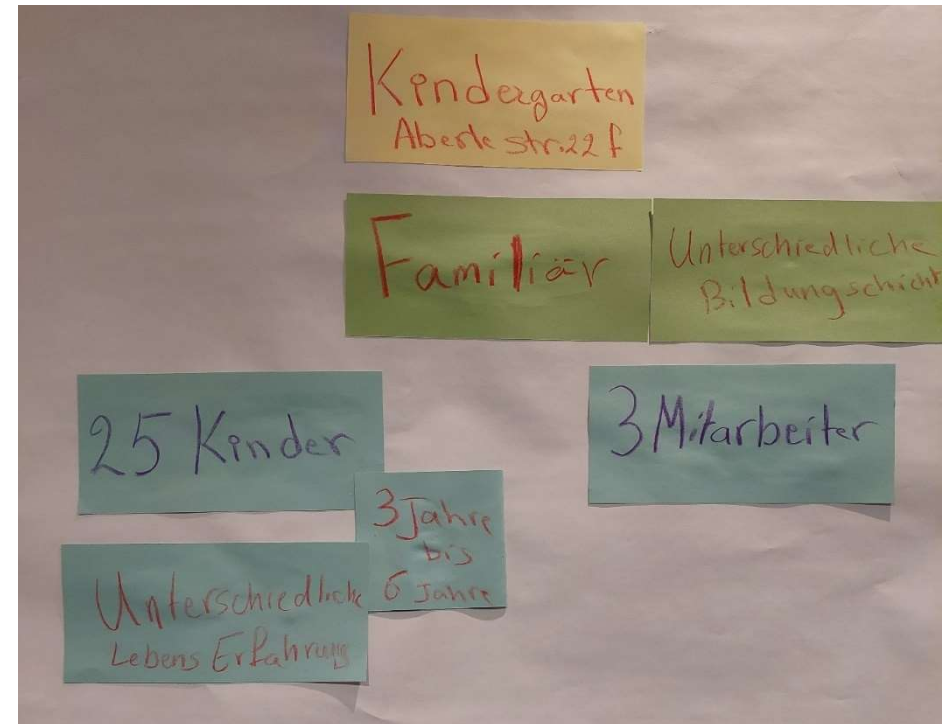 Kindergarten
Aberle str.22 f
Familiär
Unterschiedliche
Bildungschicht
25 Kinder
3 Mitarbeiter
3 Jahre
bis
6 Jahre
Unterschiedliche
Lebens Erfahrung